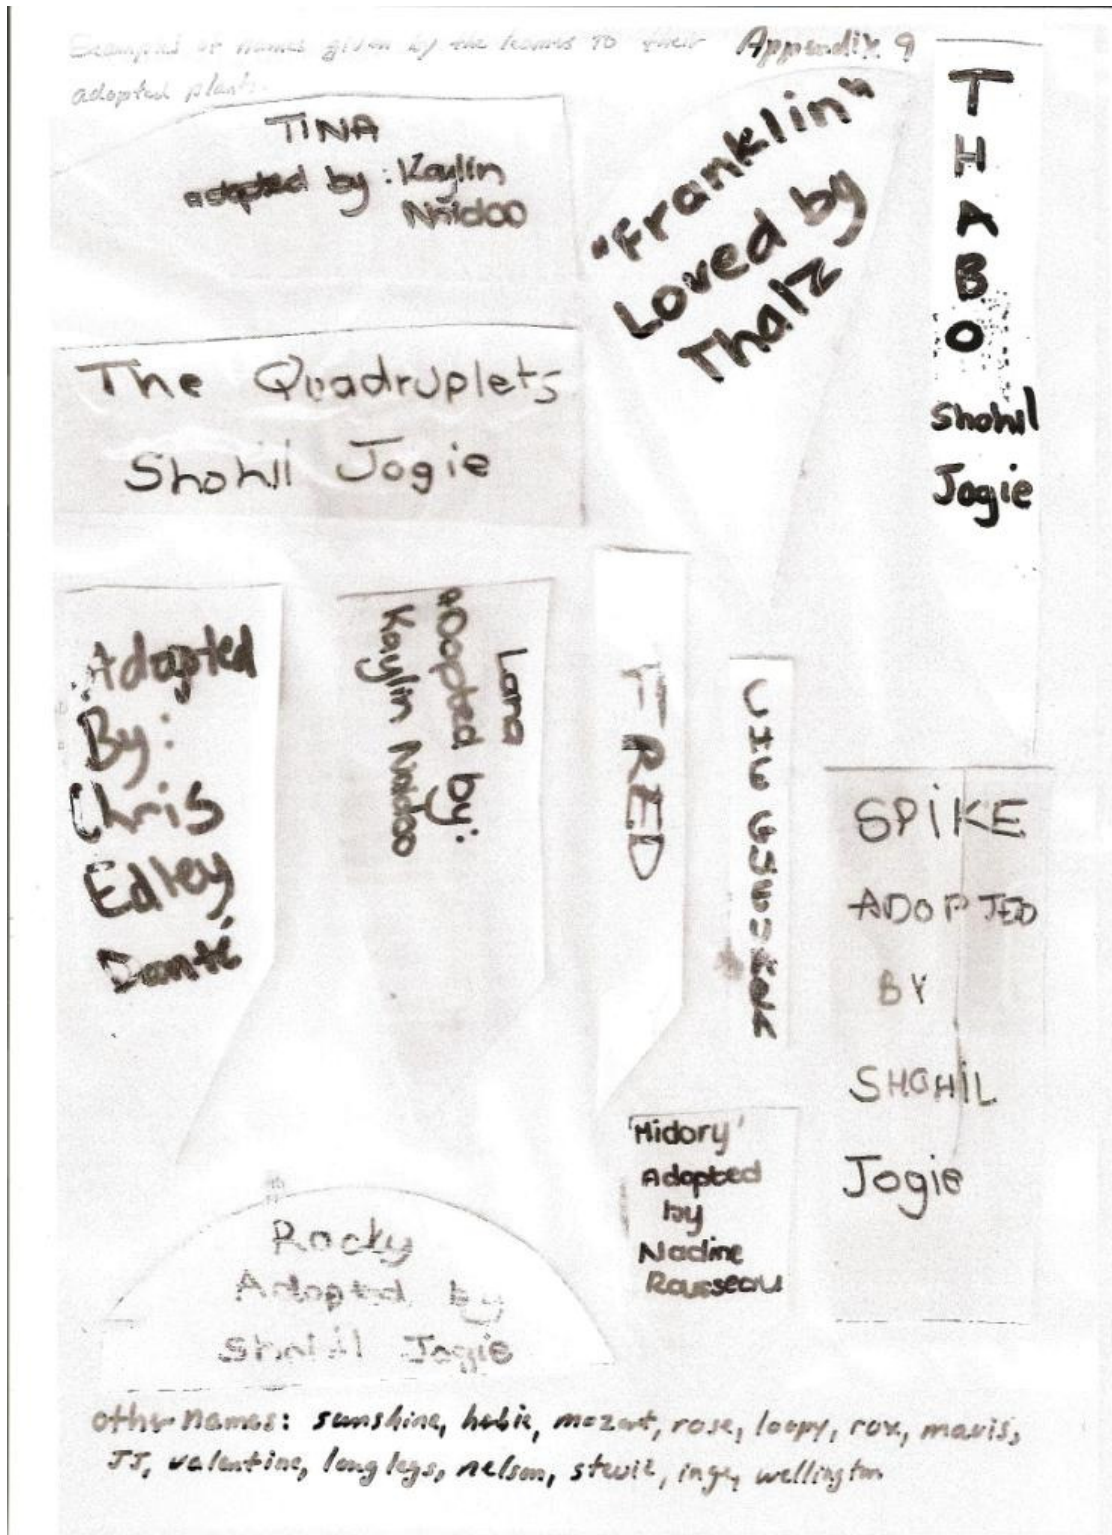 Examples of names given by the learners to their Appendix 9
adopted plants.
TINA
adopted by: Kaylin
Naidoo
"Franklin"
Loved by
Thalz
THABO
Shohil
Jogie
The Quadruplets
Shohil Jogie
Adopted
By:
Chris
Edley
Danté
Lana
ADopted by:
Kaylin Naidoo
FRED
SPiKE
ADOPTED
BY
SHOHiL
Jogie
'Midory'
Adopted
by
Nadine
Rousseau
Rocky
Adopted by
Shohil Jogie
other names: sunshine, mozart, rose, loopy, rox, mavis,
JJ, valentine, long legs, nelson, stevie, inge, wellington